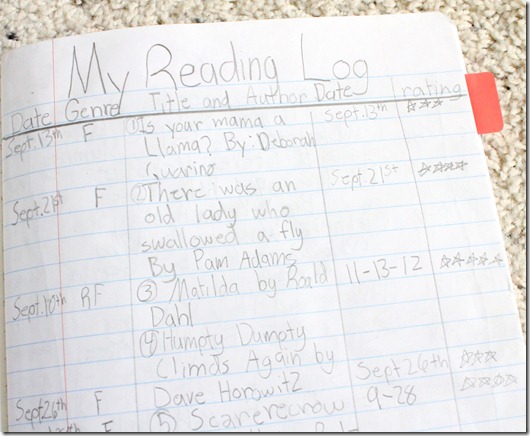 My Reading Log
Date Genre Title and Author Date rating
Sept.13th F ① Is your mama a Sept.13th ☆☆☆
Llama? By: Deborah
Guarino
Sept.21st F ② There was an Sept.21st ☆☆☆☆
old lady who
swallowed a fly
By Pam Adams
Sept.10th RF ③ Matilda by Roald 11-13-12 ☆☆☆☆☆
Dahl
④ Humpty Dumpty
Climbs Again by
Sept.26th F Dave Horowitz Sept 26th ☆☆☆
⑤ Scarerecrow 9-28 ☆☆☆☆